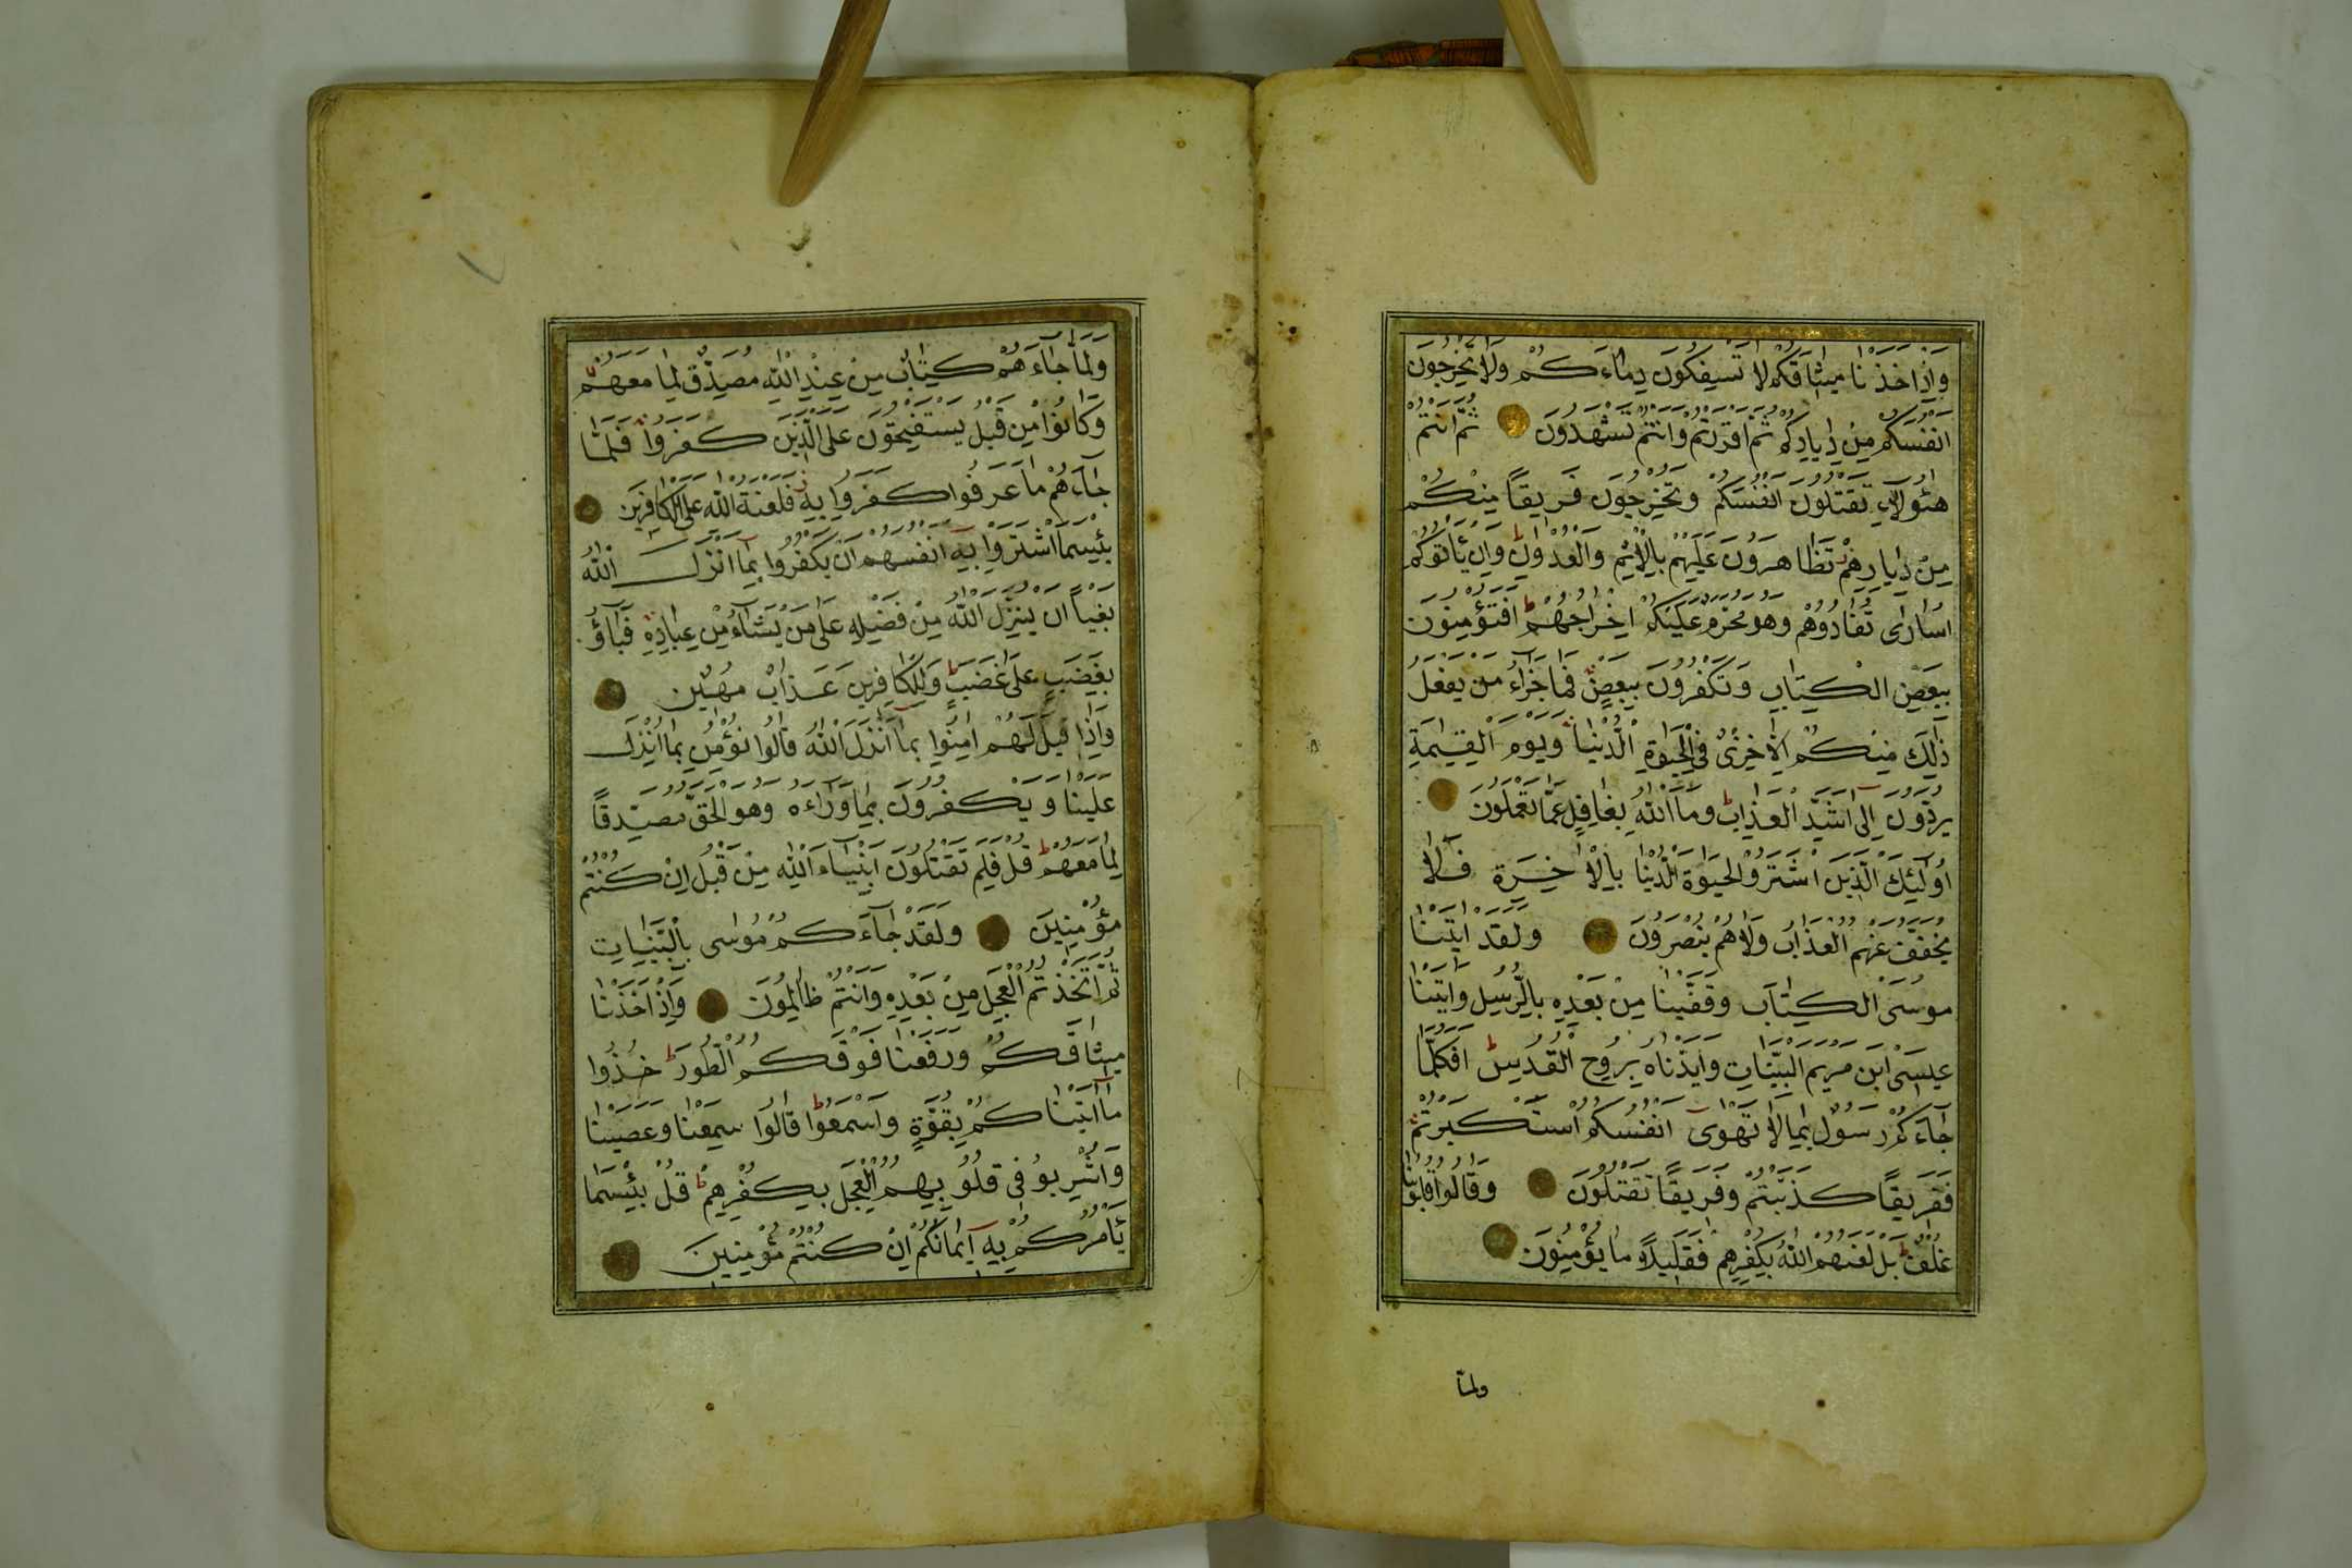 وَاِذْ اَخَذْنَا مِيثَاقَكُمْ لَا تَسْفِكُونَ دِمَاءَكُمْ وَلَا تُخْرِجُونَ
اَنْفُسَكُمْ مِنْ دِيَارِكُمْ ثُمَّ اَقْرَرْتُمْ وَاَنْتُمْ تَشْهَدُونَ ثُمَّ اَنْتُمْ
هٰؤُلَاءِ تَقْتُلُونَ اَنْفُسَكُمْ وَتُخْرِجُونَ فَرِيقًا مِنْكُمْ
مِنْ دِيَارِهِمْ تَظَاهَرُونَ عَلَيْهِمْ بِالْاِثْمِ وَالْعُدْوَانِ وَاِنْ يَأْتُوكُمْ
اُسَارٰى تُفَادُوهُمْ وَهُوَ مُحَرَّمٌ عَلَيْكُمْ اِخْرَاجُهُمْ اَفَتُؤْمِنُونَ
بِبَعْضِ الْكِتَابِ وَتَكْفُرُونَ بِبَعْضٍ فَمَا جَزَاءُ مَنْ يَفْعَلُ
ذٰلِكَ مِنْكُمْ اِلَّا خِزْىٌ فِى الْحَيٰوةِ الدُّنْيَا وَيَوْمَ الْقِيٰمَةِ
يُرَدُّونَ اِلٰى اَشَدِّ الْعَذَابِ وَمَا اللّٰهُ بِغَافِلٍ عَمَّا تَعْمَلُونَ
اُولٰئِكَ الَّذِينَ اشْتَرَوُا الْحَيٰوةَ الدُّنْيَا بِالْاٰخِرَةِ فَلَا
يُخَفَّفُ عَنْهُمُ الْعَذَابُ وَلَا هُمْ يُنْصَرُونَ وَلَقَدْ اٰتَيْنَا
مُوسَى الْكِتَابَ وَقَفَّيْنَا مِنْ بَعْدِهِ بِالرُّسُلِ وَاٰتَيْنَا
عِيسَى ابْنَ مَرْيَمَ الْبَيِّنَاتِ وَاَيَّدْنَاهُ بِرُوحِ الْقُدُسِ اَفَكُلَّمَا
جَاءَكُمْ رَسُولٌ بِمَا لَا تَهْوٰى اَنْفُسُكُمُ اسْتَكْبَرْتُمْ
فَفَرِيقًا كَذَّبْتُمْ وَفَرِيقًا تَقْتُلُونَ وَقَالُوا قُلُوبُنَا
غُلْفٌ بَلْ لَعَنَهُمُ اللّٰهُ بِكُفْرِهِمْ فَقَلِيلًا مَا يُؤْمِنُونَ
ولمّا
وَلَمَّا جَاءَهُمْ كِتَابٌ مِنْ عِنْدِ اللّٰهِ مُصَدِّقٌ لِمَا مَعَهُمْ
وَكَانُوا مِنْ قَبْلُ يَسْتَفْتِحُونَ عَلَى الَّذِينَ كَفَرُوا فَلَمَّا
جَاءَهُمْ مَا عَرَفُوا كَفَرُوا بِهِ فَلَعْنَةُ اللّٰهِ عَلَى الْكَافِرِينَ
بِئْسَمَا اشْتَرَوْا بِهِ اَنْفُسَهُمْ اَنْ يَكْفُرُوا بِمَا اَنْزَلَ اللّٰهُ
بَغْيًا اَنْ يُنَزِّلَ اللّٰهُ مِنْ فَضْلِهِ عَلٰى مَنْ يَشَاءُ مِنْ عِبَادِهِ فَبَاؤُ
بِغَضَبٍ عَلٰى غَضَبٍ وَلِلْكَافِرِينَ عَذَابٌ مُهِينٌ
وَاِذَا قِيلَ لَهُمْ اٰمِنُوا بِمَا اَنْزَلَ اللّٰهُ قَالُوا نُؤْمِنُ بِمَا اُنْزِلَ
عَلَيْنَا وَيَكْفُرُونَ بِمَا وَرَاءَهُ وَهُوَ الْحَقُّ مُصَدِّقًا
لِمَا مَعَهُمْ قُلْ فَلِمَ تَقْتُلُونَ اَنْبِيَاءَ اللّٰهِ مِنْ قَبْلُ اِنْ كُنْتُمْ
مُؤْمِنِينَ وَلَقَدْ جَاءَكُمْ مُوسٰى بِالْبَيِّنَاتِ
ثُمَّ اتَّخَذْتُمُ الْعِجْلَ مِنْ بَعْدِهِ وَاَنْتُمْ ظَالِمُونَ وَاِذْ اَخَذْنَا
مِيثَاقَكُمْ وَرَفَعْنَا فَوْقَكُمُ الطُّورَ خُذُوا
مَا اٰتَيْنَاكُمْ بِقُوَّةٍ وَاسْمَعُوا قَالُوا سَمِعْنَا وَعَصَيْنَا
وَاُشْرِبُو فِى قُلُوبِهِمُ الْعِجْلَ بِكُفْرِهِمْ قُلْ بِئْسَمَا
يَأْمُرُكُمْ بِهِ اِيمَانُكُمْ اِنْ كُنْتُمْ مُؤْمِنِينَ